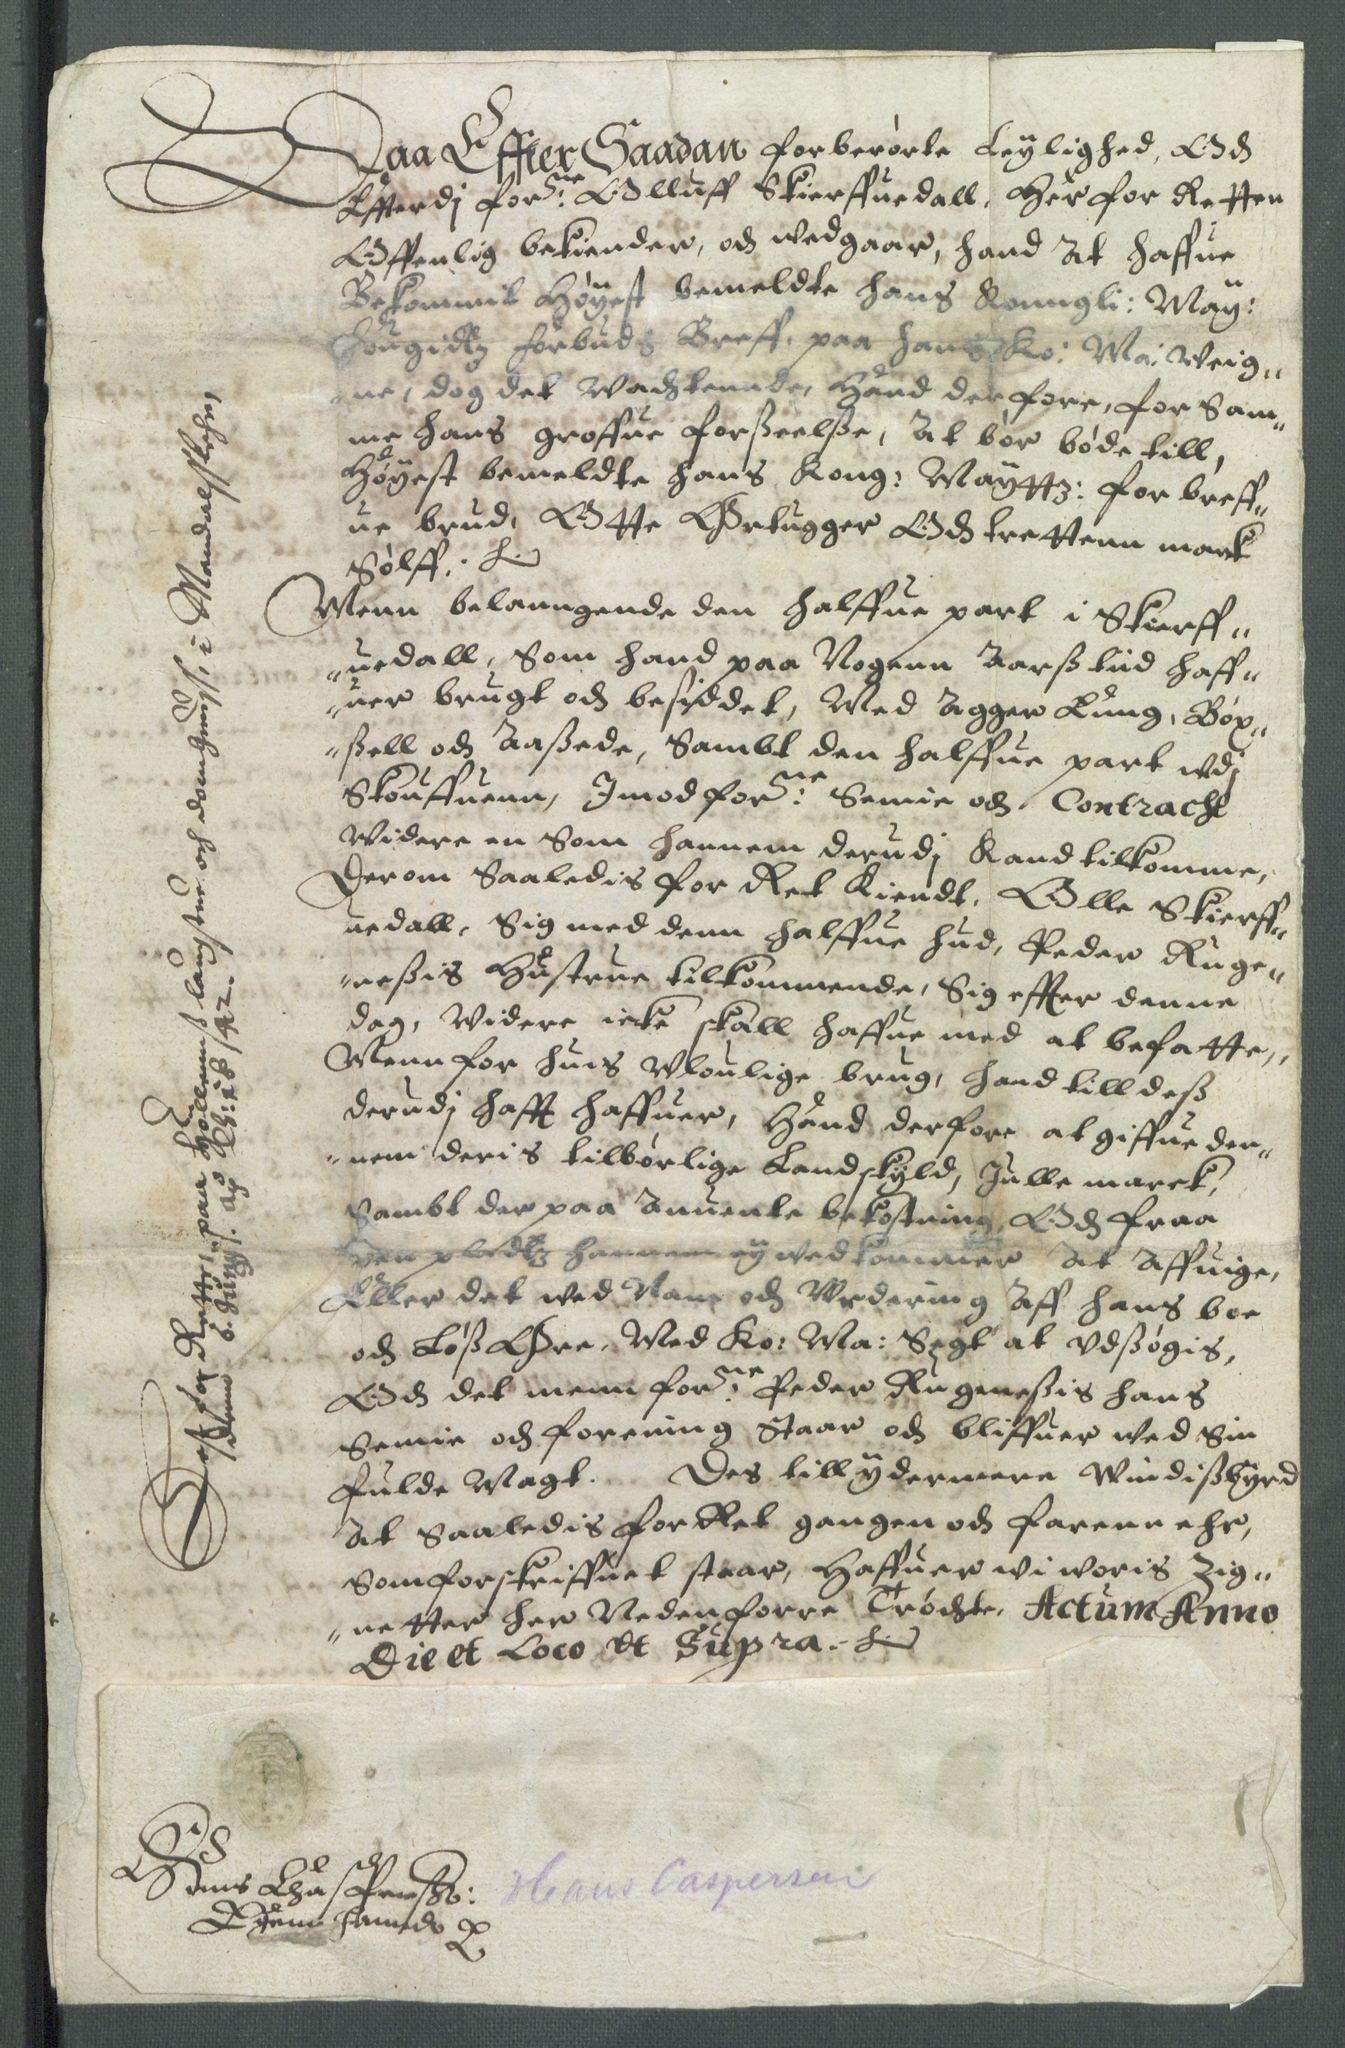 Daa Effter Saadan forberørte Leylighed, Och
Effterdj forne: Olluff Skierffuedall, Her for Retten
Offenlig bekiender, och wedgaar, hand At haffue
Bekommit Høyest bemeldte hans Konngli: May:
forbuds Breff, paa hans Ko: Ma: Weig„
ne, dog det Hand derfore, for Sam„
me hans groffue forßeelße, At bør bøde till,
Høyest bemeldte hans Kong: Mayttz: for breff„
ue brud, Otte Ørtugger Och trettenn marck
Sølff.
Menn belanngende den halffue part i Skierff„
„uedall, Som hand paa Nogenn Aarß tiid haff„
„uer brugt och besiddet, Med Agger Eung, Bøx„
„ßell och Aaßede, Sambt den halffue part udj
Skouffuenn, Imod forne: Semie och Contracht
Widere en Som hannem derudj Kand tilkomme,
Derom Saaledis for Ret Kiendt, Olle Skierff„
uedall, Sig med denn halffue hud, Peder Ruge„
„neßis Hustrue tilkommende, Sig effter denne
dag, Widere icke skall haffue med at befatte,
Menn for huis Wloulige brug, hand till deß
derudj hafft haffuer, Hand derfore at giffue den„
„nem deris tilbørlige Landskyld, Julle marck,
Sambt der paa Anuente bekostning, Och fraa
hannem ey wedkommer At Affuige,
Eller det wed Nam och Wrdering Aff hans boe
och Løß Øre, Med Ko: Ma: Segt at Udßøgis,
Och det menn forne: Peder Rugneßis hans
Semie och forening Staar och bliffuer wed Sin
fulde Magt. Des till ydermere Windißbyrd
At Saaledis for Ret gangen och farenn ehr,
Som forskriffuet staar, Haffuer wi woris Zig„
„netter her Nedenforre Trøchte, Actum Anno
Die et Loco Ut Supra.
Lest for Rette, paa Høllenns laugstue och i Mandals Lehn,
denn 6. Junij. Ao 1642.
Hans Caspersen